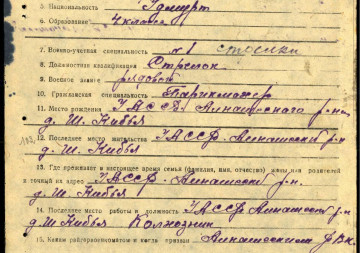 5. Национальность Удмурт
6. Образование 4 класса
7. Военно-учетная специальность №1 стрелки
8. Должностная квалификация Стрелок
9. Военное звание рядовой
10. Гражданская специальность Парикмахер
11. Место рождения УАССР. Алнашского р-на
д. Ш. Кибья
12. Последнее место жительства УАССР. Алнашский р-н
д. Ш. Кибья
13. Где проживает в настоящее время семья (фамилия, имя, отчество) жены или родителей
и точный их адрес УАССР - Алнашский р-н.
д. Ш. Кибья
14. Последнее место работы и должность УАССР Алнашский р-н
д. Ш. Кибья Колхозник
15. Каким райгорвоенкоматом и когда призван Алнашским РВК